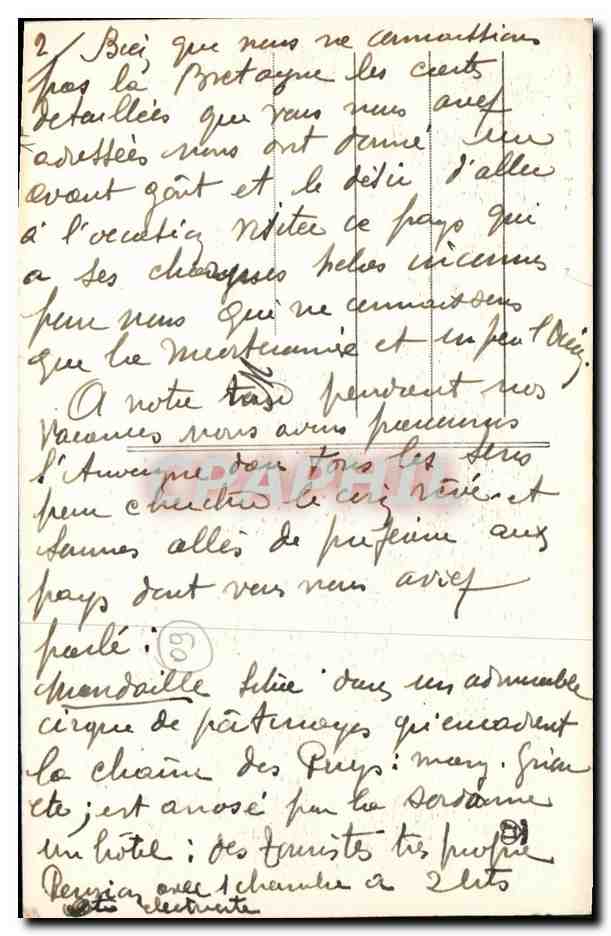 2/ Bien que nous ne connaissions
pas la Bretagne les cartes
detaillées que vous nous avez
adressées nous ont donné un
avant goût et le désir d'aller
à l'occasion visiter ce pays qui
a ses charmes hélas inconnus
pour nous qui ne connaissons
que la Normandie et un peu l'
A notre tour pendant nos
vacances nous avons parcourus
l'Auvergne dans tous les sens
pour chercher le coin rêvé et
sommes allés de préférence aux
pays dont vous nous aviez
parlé :
09
Mandaille situé dans un admirable
cirque de pâturages qu'encadrent
la chaîne des Puys : Mary. Griou
etc ; est arrosé par la Jordanne
un hôtel : des touristes très propre
Pension avec 1 chambre à 2 lits
electricité
CPAPHIL